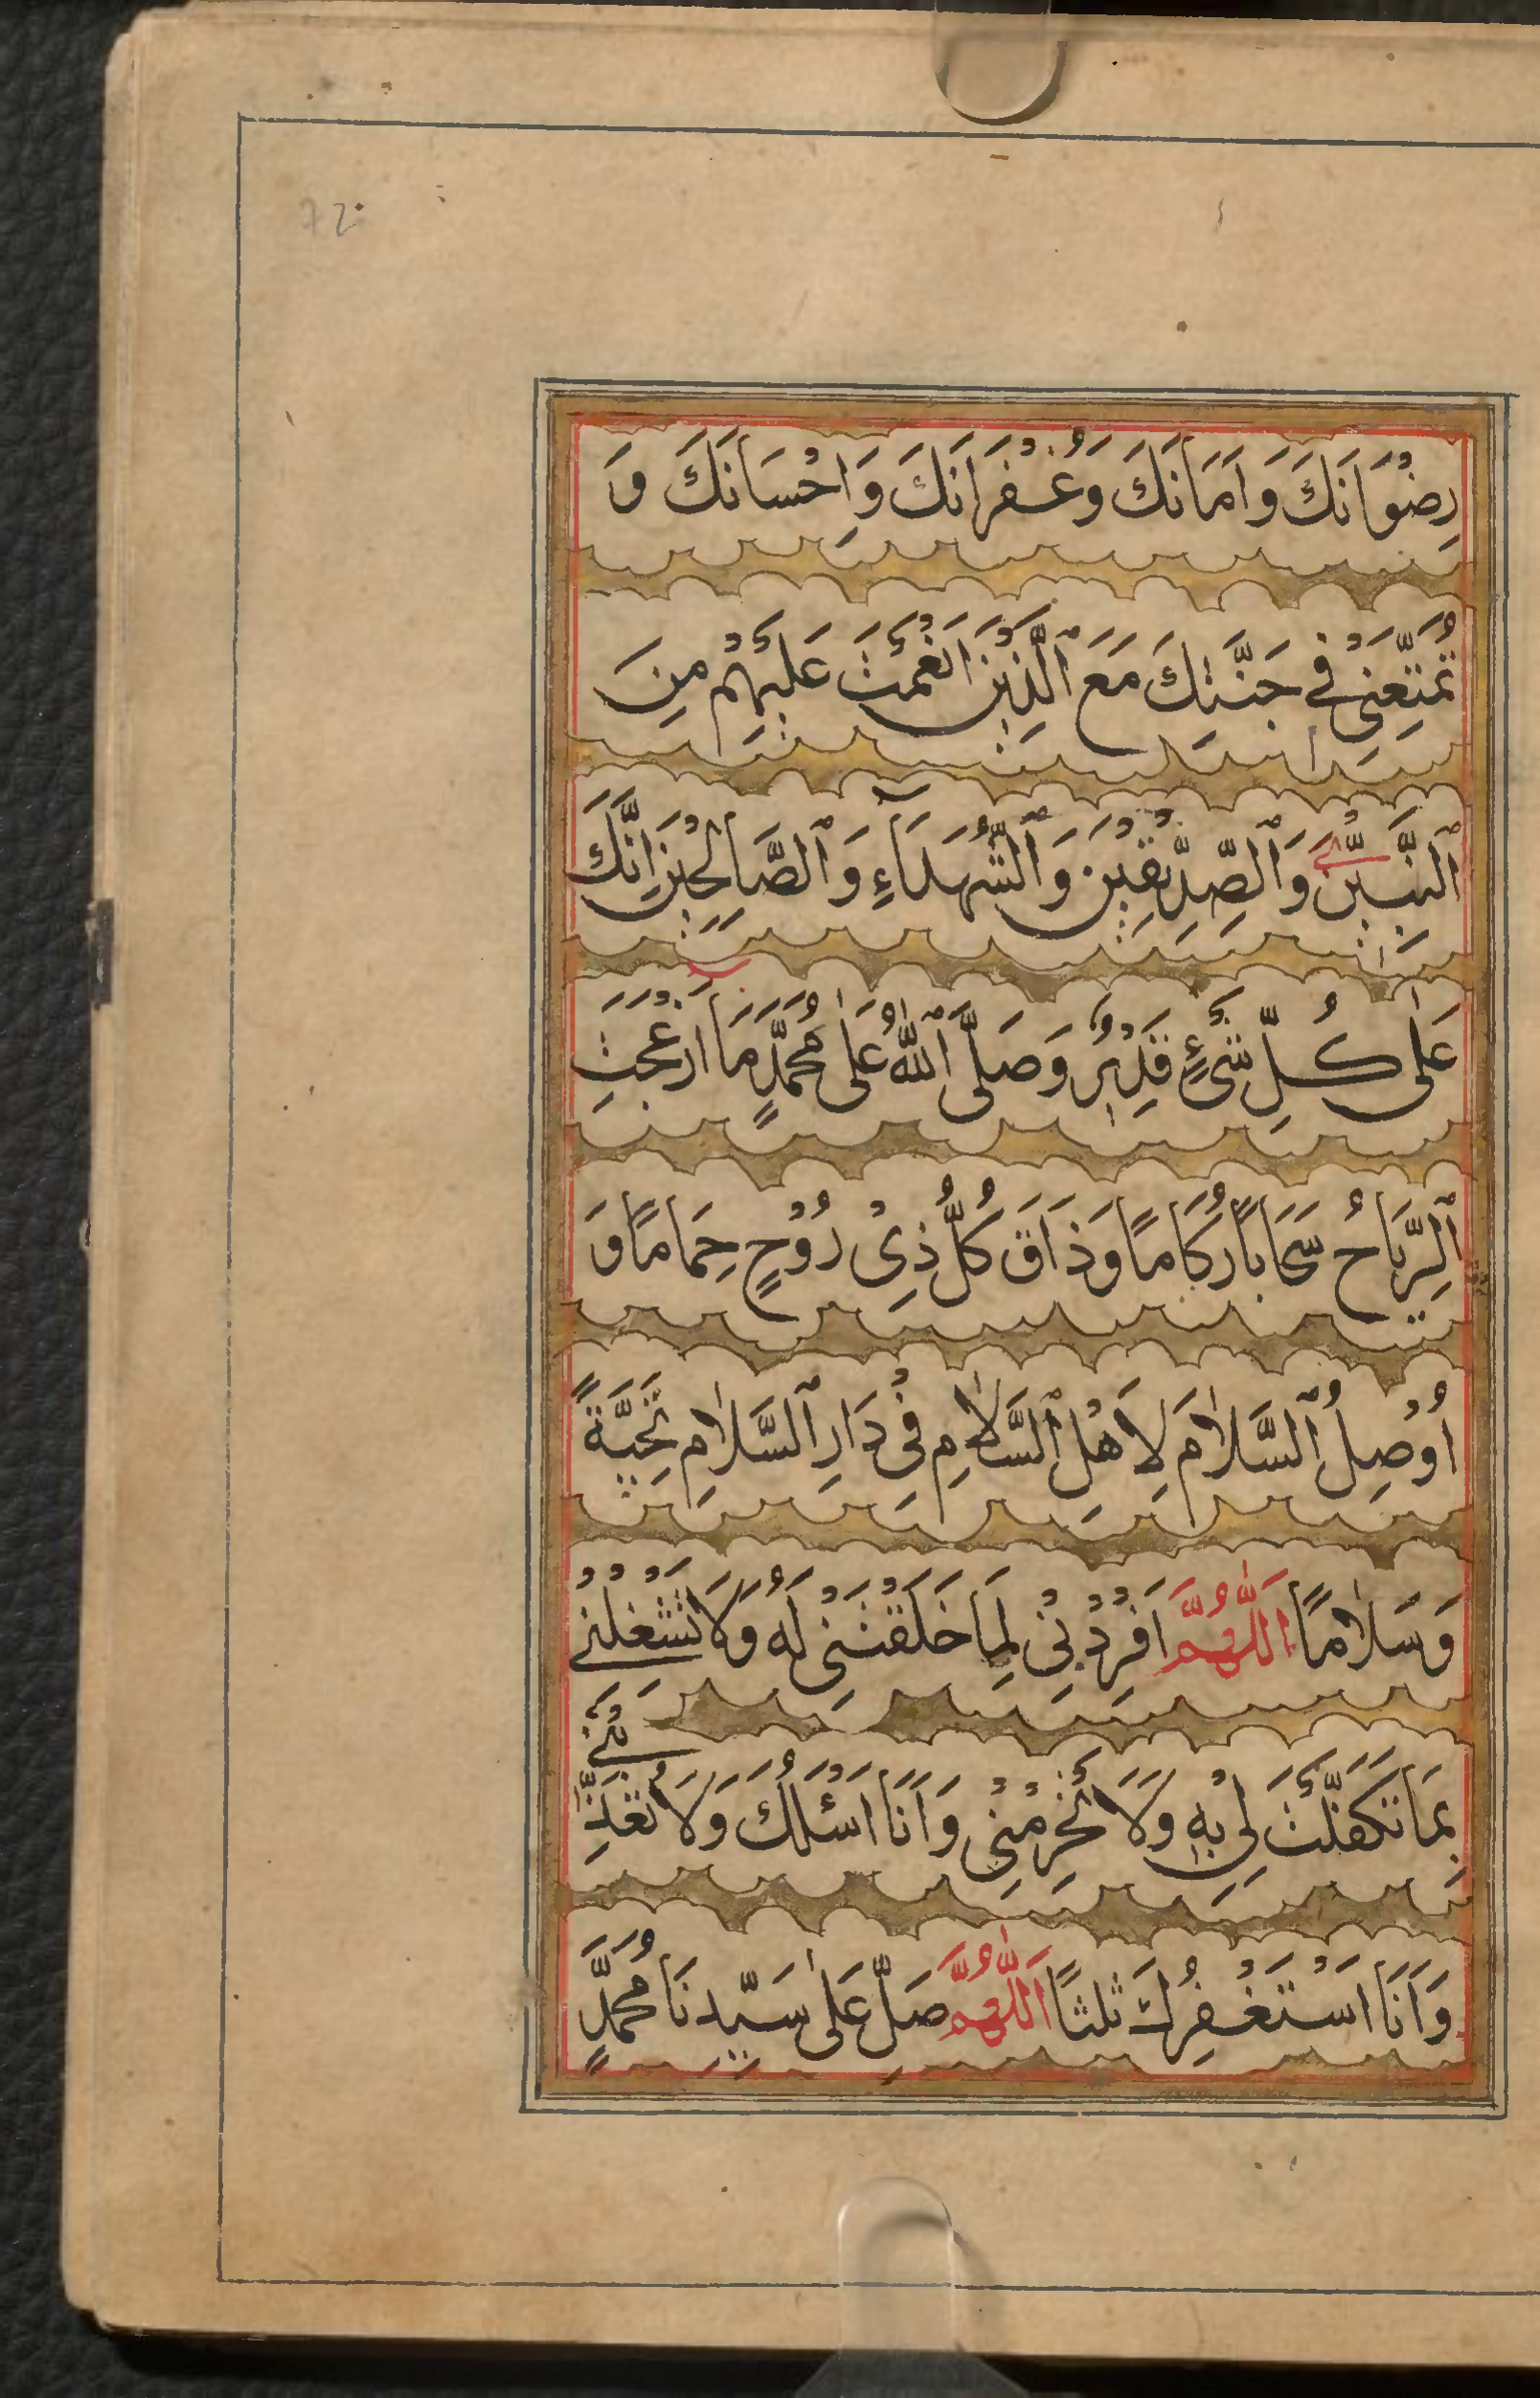 72
رِضْوَانَكَ وَاَمَانَكَ وَغُفْرَانَكَ وَاِحْسَانَكَ وَ
تُمَتِّعَنِيْ فِيْ جَنَّتِكَ مَعَ ٱلَّذِيْنَ اَنْعَمْتَ عَلَيْهِمْ مِنَ
ٱلنَّبِيّٖنَ وَٱلصِّدِّيْقِيْنَ وَٱلشُّهَدَآءِ وَٱلصَّالِحِيْنَ اِنَّكَ
عَلٰى كُلِّ شَيْءٍ قَدِيْرٌ وَصَلَّى ٱللّٰهُ عَلٰى مُحَمَّدٍ مَا ازْعَجَتِ
ٱلرِّيَاحُ سَحَابًا رُكَامًا وَذَاقَ كُلُّ ذِيْ رُوْحٍ حِمَامًا وَ
اُوْصِلُ ٱلسَّلَامَ لِاَهْلِ ٱلسَّلَامِ فِيْ دَارِ ٱلسَّلَامِ تَحِيَّةً
وَسَلَامًا اَللّٰهُمَّ اَفْرِدْنِيْ لِمَا خَلَقْتَنِيْ لَهُ وَلَا تَشْغَلْنِيْ
بِمَا تَكَفَّلْتَ لِيْ بِهٖ وَلَا تَحْرِمْنِيْ وَاَنَا اَسْئَلُكَ وَلَا تُعَذِّبْنِيْ
وَاَنَا اَسْتَغْفِرُكَ ثَلٰثًا اَللّٰهُمَّ صَلِّ عَلٰى سَيِّدِنَا مُحَمَّدٍ